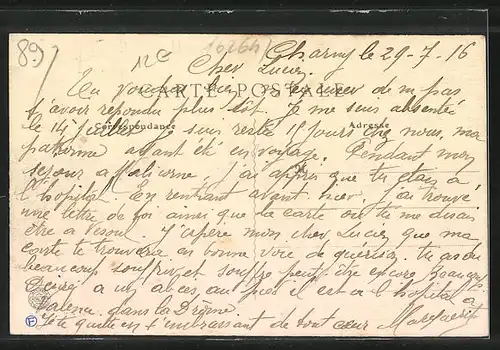 89
Charny le 29-7-16
Cher Lucien.
CARTE POSTALE
Tu voudras bien m'excuser de ne pas
t'avoir répondu plus tôt. Je me suis absentée
le 14 Juillet, je suis restée 15 jours chez nous, ma
Correspondance
Adresse
patronne ayant été en voyage. Pendant mon
séjour à j'ai appris que tu étais à
l'hôpital. En rentrant avant hier j'ai trouvé
une lettre de toi ainsi que la carte où tu me disais
être à Vesoul. J'espère mon cher Lucien que ma
carte te trouvera en bonne voie de guérison, tu as du
beaucoup souffrir et souffre peut être encore beaucoup
a un abcès au il est à l'hôpital à
Valence dans la Drôme.
Je te quitte en t'embrassant de tout cœur Marguerite
F